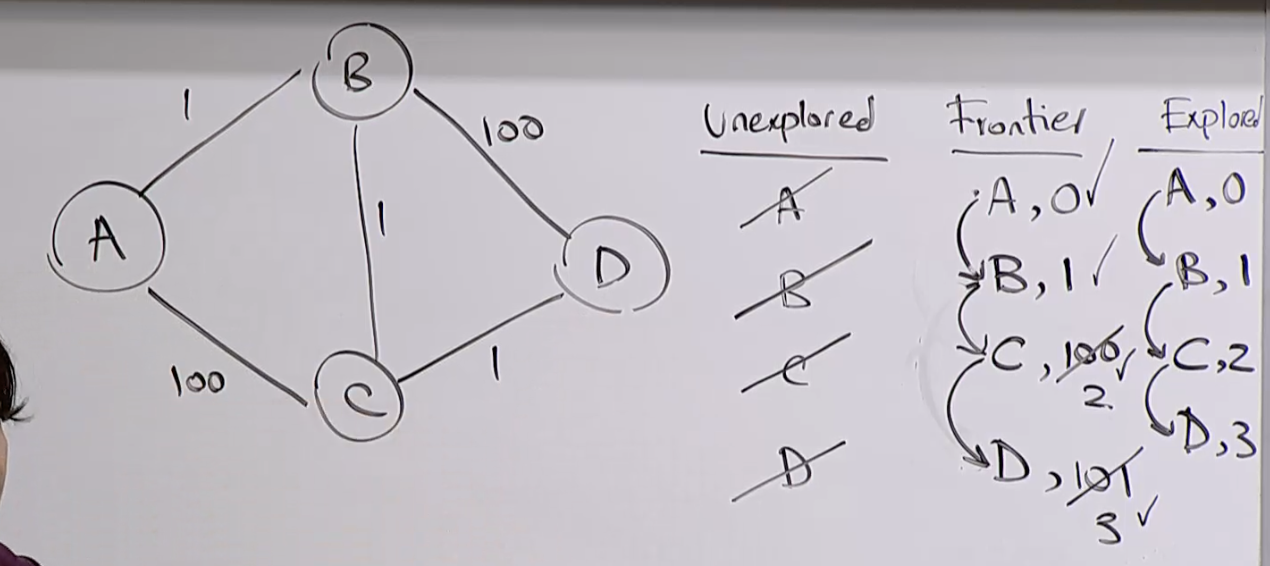 B
1
100
A
1
D
100
C
1
Unexplored
A
B
C
D
Frontier
A, 0 ✓
B, 1 ✓
C, 100 ✓
2
D, 101
3 ✓
Explored
A, 0
B, 1
C, 2
D, 3